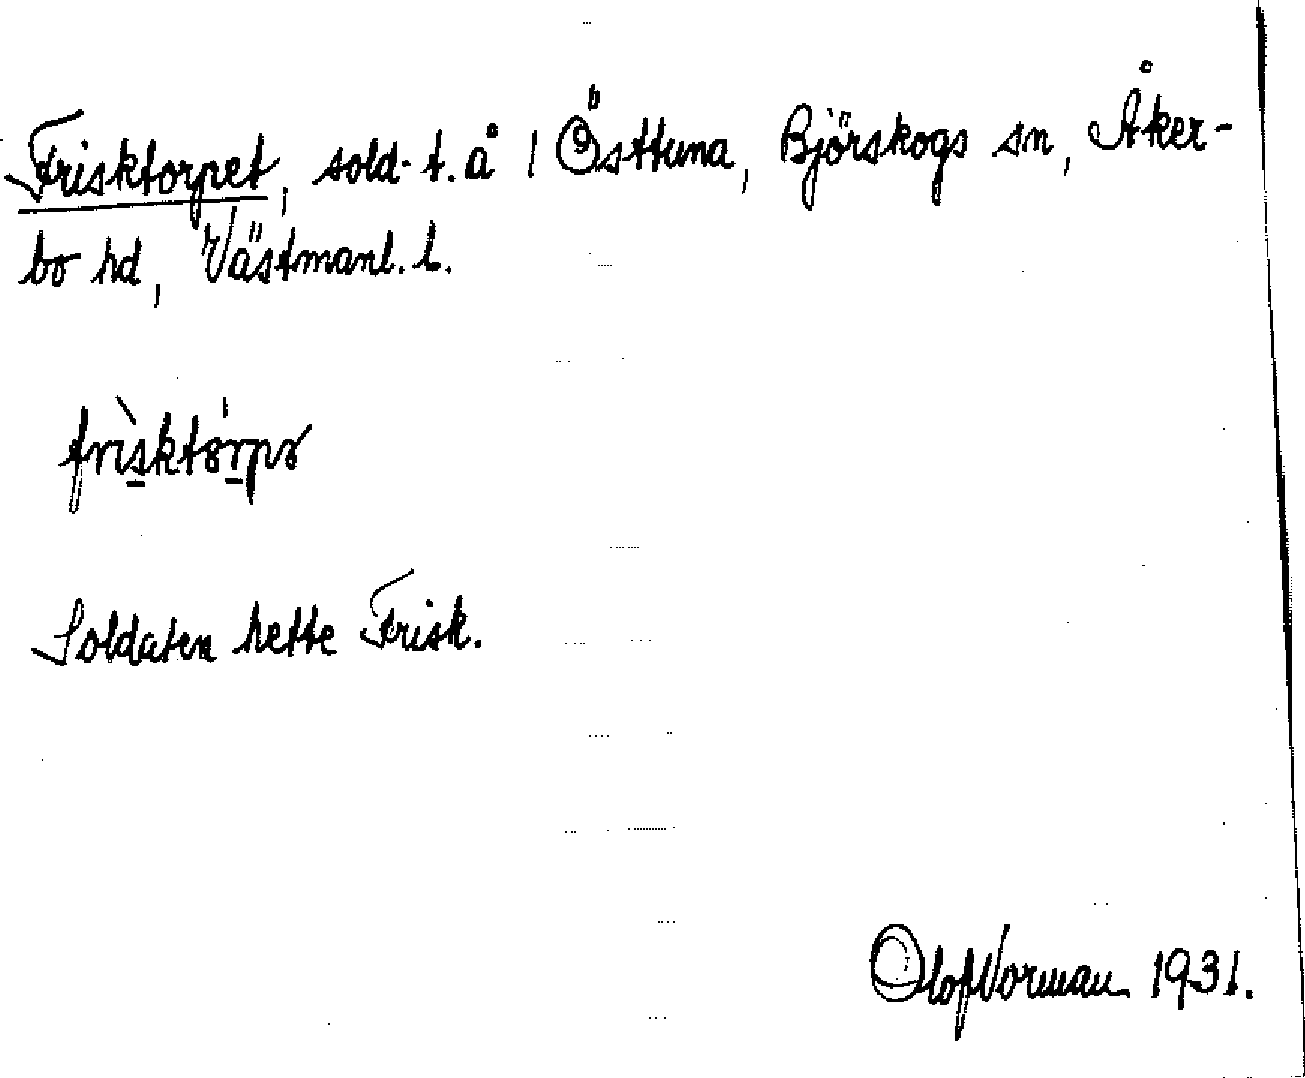 Frisktorpet, sold. t. å 1 Östtuna, Björskogs sn, Åker-
bo hd, Västmanl. l.
frìsktórpə
Soldaten hette Frisk.
Olof Norman 1931.